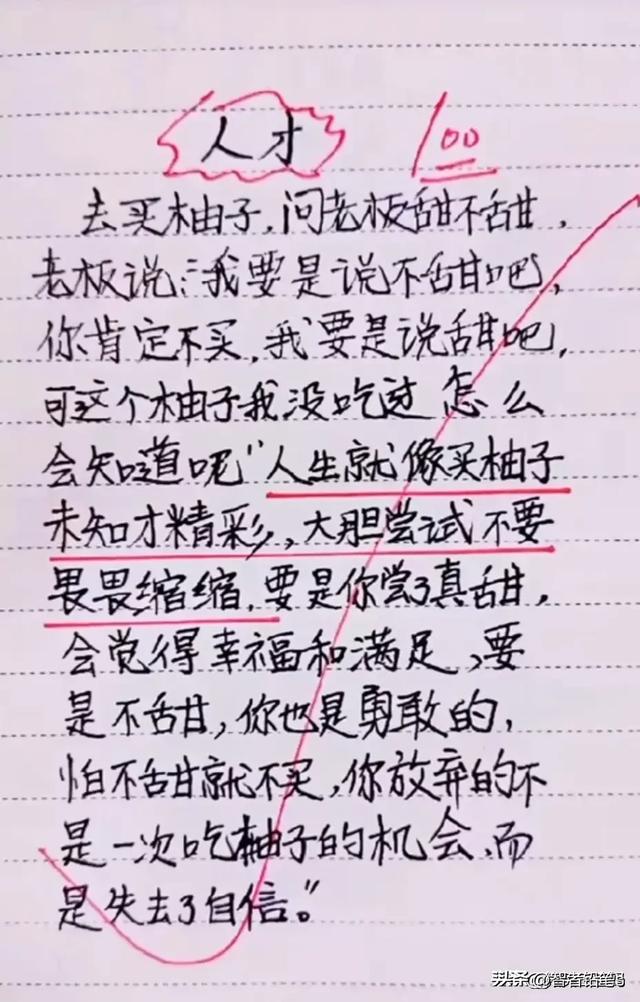 人才
100
去买柚子,问老板甜不甜,
老板说:"我要是说不甜吧,
你肯定不买,我要是说甜吧,
可这个柚子我没吃过怎么
会知道呢"人生就像买柚子
未知才精彩,大胆尝试不要
畏畏缩缩,要是你尝了真甜,
会觉得幸福和满足,要
是不甜,你也是勇敢的,
怕不甜就不买,你放弃的不
是一次吃柚子的机会,而
是失去了自信。"
头条@智者铅笔